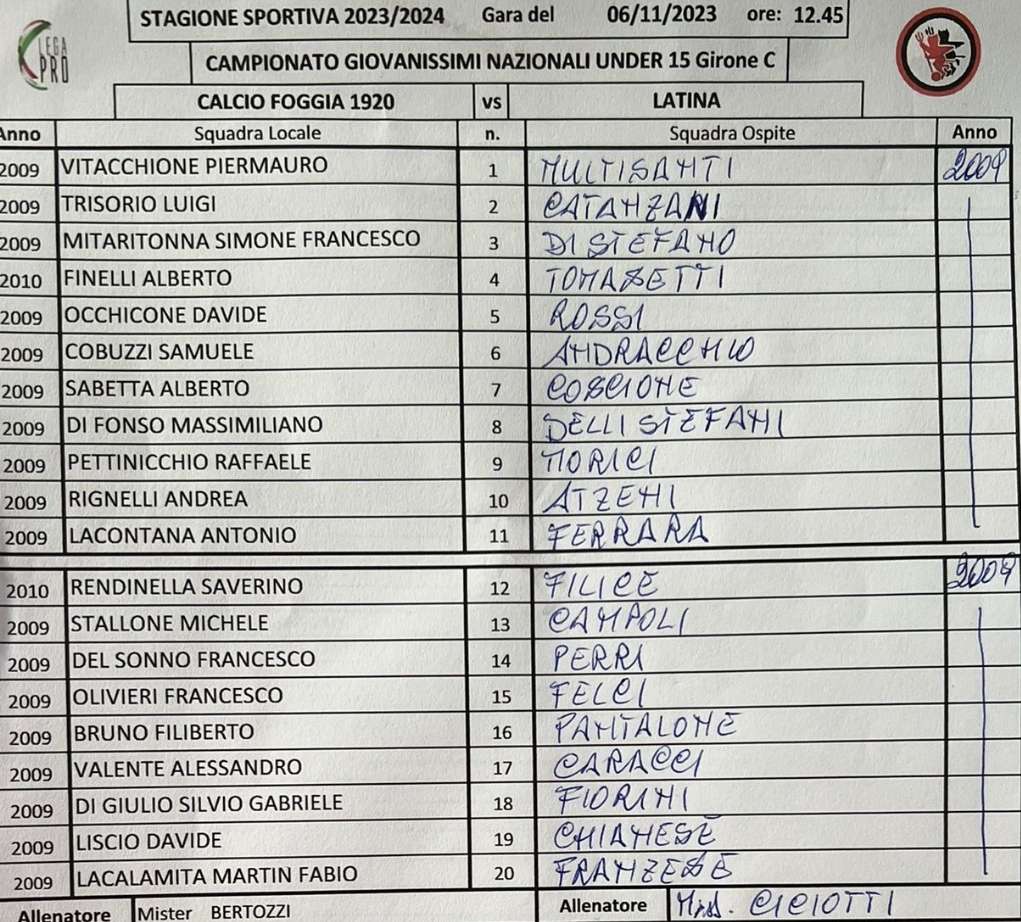 STAGIONE SPORTIVA 2023/2024 Gara del 06/11/2023 ore: 12.45
LEGA PRO
CAMPIONATO GIOVANISSIMI NAZIONALI UNDER 15 Girone C
CALCIO FOGGIA 1920 vs LATINA
Anno Squadra Locale n. Squadra Ospite Anno
2009 VITACCHIONE PIERMAURO 1 MULTISANTI 2009
2009 TRISORIO LUIGI 2 CATANZANI
2009 MITARITONNA SIMONE FRANCESCO 3 DI STEFANO
2010 FINELLI ALBERTO 4 TOMASETTI
2009 OCCHICONE DAVIDE 5 ROSSI
2009 COBUZZI SAMUELE 6 ANDRACCHIO
2009 SABETTA ALBERTO 7 COSCIONE
2009 DI FONSO MASSIMILIANO 8 DELLI STEFANI
2009 PETTINICCHIO RAFFAELE 9 NORICI
2009 RIGNELLI ANDREA 10 ATZENI
2009 LACONTANA ANTONIO 11 FERRARA
2010 RENDINELLA SAVERINO 12 FILICE 2009
2009 STALLONE MICHELE 13 CAMPOLI
2009 DEL SONNO FRANCESCO 14 PERRI
2009 OLIVIERI FRANCESCO 15 FELCI
2009 BRUNO FILIBERTO 16 PANTALONE
2009 VALENTE ALESSANDRO 17 CARACCI
2009 DI GIULIO SILVIO GABRIELE 18 FIORINI
2009 LISCIO DAVIDE 19 CHIANESE
2009 LACALAMITA MARTIN FABIO 20 FRANZESE
Allenatore Mister BERTOZZI Allenatore CICIOTTI